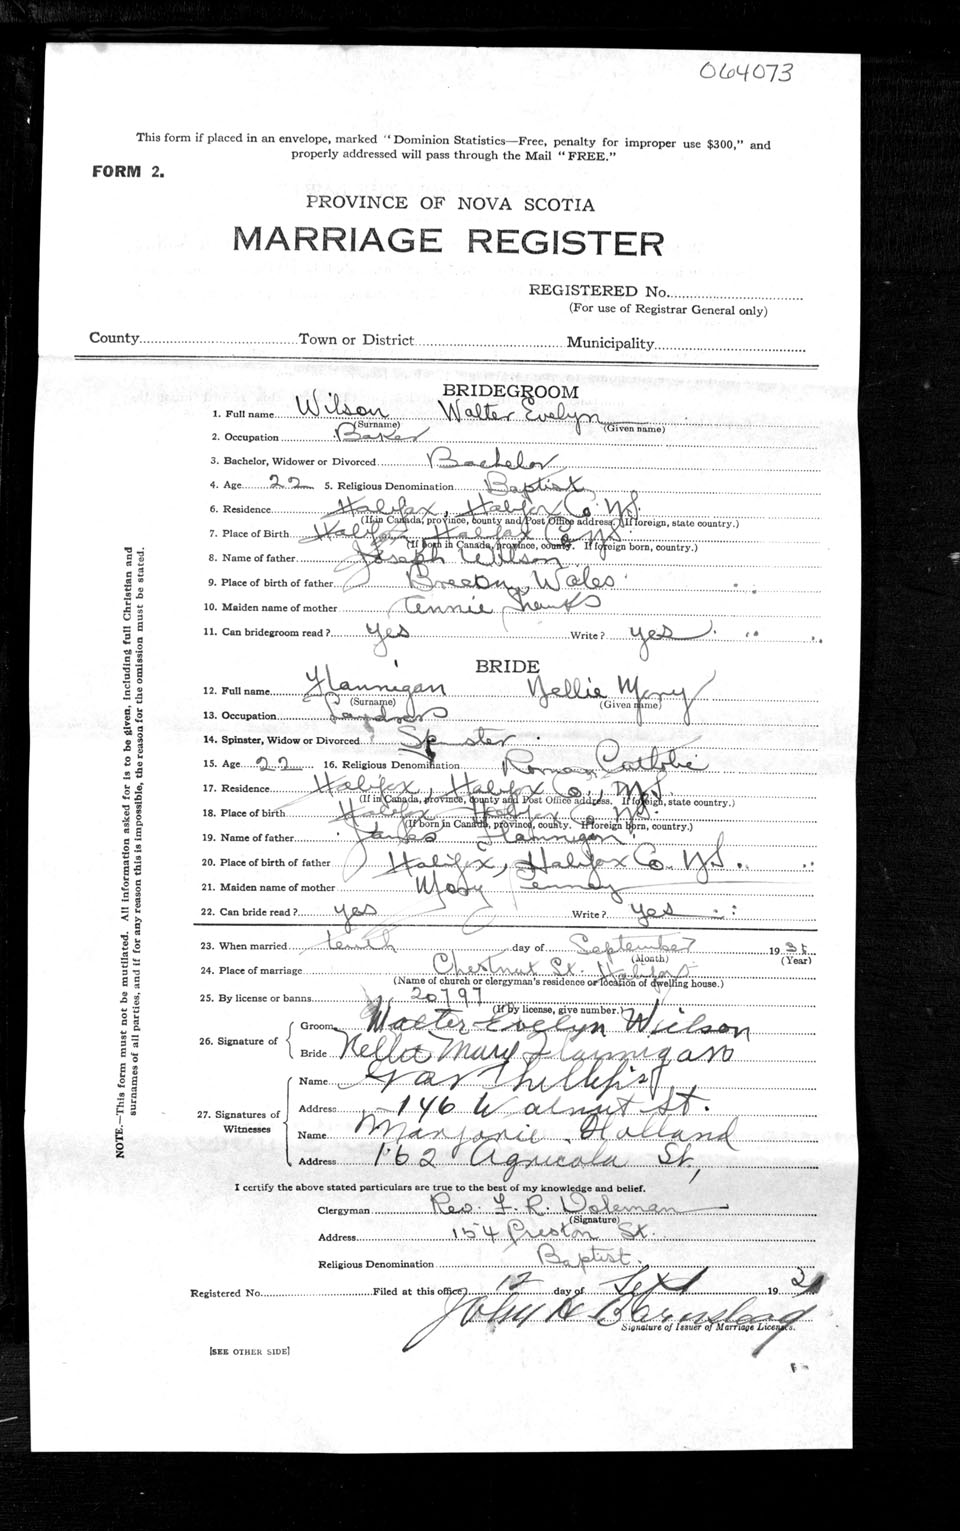 064073
This form if placed in an envelope, marked "Dominion Statistics—Free, penalty for improper use $300," and
properly addressed will pass through the Mail "FREE."
FORM 2.
PROVINCE OF NOVA SCOTIA
MARRIAGE REGISTER
REGISTERED No.
(For use of Registrar General only)
County Town or District Municipality
BRIDEGROOM
1. Full name Wilson Walter Evelyn
(Surname) (Given name)
2. Occupation Baker
3. Bachelor, Widower or Divorced Bachelor
4. Age 22 5. Religious Denomination Baptist
6. Residence Halifax, Halifax Co. N.S.
(If in Canada, province, county and Post Office address. If foreign, state country.)
7. Place of Birth Halifax Halifax Co N.S.
(If born in Canada, province, county. If foreign born, country.)
8. Name of father Joseph Wilson
9. Place of birth of father Wales
10. Maiden name of mother
11. Can bridegroom read? yes Write? yes
BRIDE
12. Full name Flannigan Nellie Mary
(Surname) (Given name)
13. Occupation
14. Spinster, Widow or Divorced Spinster
15. Age 22 16. Religious Denomination Roman Catholic
17. Residence Halifax, Halifax Co., N.S.
(If in Canada, province, county and Post Office address. If foreign, state country.)
18. Place of birth Halifax Halifax Co N.S.
(If born in Canada, province, county. If foreign born, country.)
19. Name of father James Flannigan
20. Place of birth of father Halifax, Halifax Co. N.S.
21. Maiden name of mother Mary
22. Can bride read? yes Write? yes
23. When married tenth day of September 19
(Month) (Year)
24. Place of marriage Chestnut St. Halifax
(Name of church or clergyman's residence or location of dwelling house.)
25. By license or banns 20797
(If by license, give number.)
26. Signature of Groom Walter Evelyn Wilson
Bride Nellie Mary Flannigan
27. Signatures of Witnesses
Name
Address 146 Walnut St.
Name Marjorie Holland
Address 162 Agricola St.,
I certify the above stated particulars are true to the best of my knowledge and belief.
Clergyman Rev. F. R.
(Signature)
Address 154 Preston St.
Religious Denomination Baptist.
Registered No. Filed at this office 12 day of Sept 19
John
Signature of Issuer of Marriage Licenses.
[SEE OTHER SIDE]
NOTE.—This form must not be mutilated. All information asked for is to be given, including full Christian and
surnames of all parties, and if for any reason this is impossible, the reason for the omission must be stated.